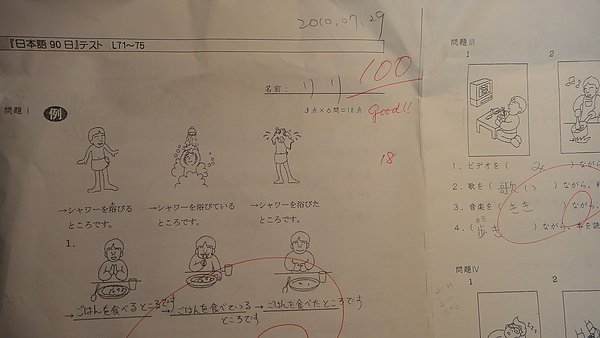 2010.07.29
『日本語90日』テスト L71～75
名前： リリ
100
3点×6問=18点
Good!!
18
問題Ⅰ 例
→シャワーを浴びる
ところです。
→シャワーを浴びている
ところです。
→シャワーを浴びた
ところです。
1.
→ごはんを食べるところです
→ごはんを食べている
ところです
→ごはんを食べたところです
問題Ⅲ
1
2
1. ビデオを( み )ながら、
2. 歌を( 歌い )ながら、
3. 音楽を( きき )ながら、
4. ( 歩き )ながら、本を読
問題Ⅳ
1
2